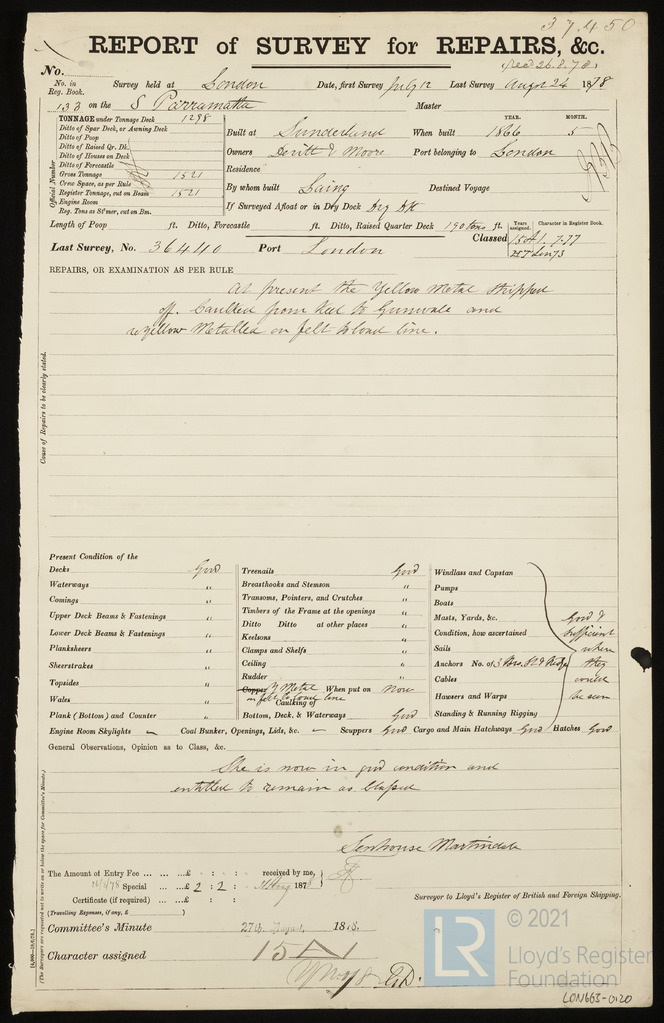 37450
REPORT of SURVEY for REPAIRS, &c.
Recd 26.8.78
No.
No. in Reg. Book. Survey held at London Date, first Survey July 12 Last Survey Augst 24 1878
133 on the S Parramatta Master
TONNAGE under Tonnage Deck 1298
Ditto of Spar Deck, or Awning Deck
Ditto of Poop
Ditto of Raised Qr. Dk.
Ditto of Houses on Deck
Ditto of Forecastle
Gross Tonnage 1521
Crew Space, as per Rule
Register Tonnage, cut on Beam 1521
Engine Room
Reg. Tons as St'mer, cut on Bm.
Official Number
YEAR. MONTH.
Built at Sunderland When built 1866 5
Owners Devitt & Moore Port belonging to London
Residence
By whom built Laing Destined Voyage
If Surveyed Afloat or in Dry Dock Dry Dk
Length of Poop ft. Ditto, Forecastle ft. Ditto, Raised Quarter Deck 190 tons ft.
Years assigned. Character in Register Book.
Last Survey, No. 36440 Port London Classed 15 A1. 7.77
REPAIRS, OR EXAMINATION AS PER RULE
At present the Yellow Metal stripped
off. Caulked from Keel to Gunwale and
reyellow Metalled on felt to load line.
Cause of Repairs to be clearly stated.
Present Condition of the
Decks Good
Waterways "
Comings "
Upper Deck Beams & Fastenings "
Lower Deck Beams & Fastenings "
Planksheers "
Sheerstrakes "
Topsides "
Wales "
Plank (Bottom) and Counter "
Treenails Good
Breasthooks and Stemson "
Transoms, Pointers, and Crutches "
Timbers of the Frame at the openings "
Ditto Ditto at other places "
Keelsons "
Clamps and Shelfs "
Ceiling "
Rudder "
Copper Y Metal When put on now
on felt to load line
Caulking of
Bottom, Deck, & Waterways Good
Windlass and Capstan
Pumps
Boats
Masts, Yards, &c.
Condition, how ascertained
Sails
Anchors No. of 3 Brs. St & Kedge
Cables
Hawsers and Warps
Standing & Running Rigging
Good &
sufficient
where
they
could
be seen
Engine Room Skylights — Coal Bunker, Openings, Lids, &c. — Scuppers Good Cargo and Main Hatchways Good Hatches Good
General Observations, Opinion as to Class, &c.
She is now in good condition and
entitled to remain as classed
Senhouse Martindale
The Amount of Entry Fee ... ... £ : : received by me,
26/8/78 Special ... £ 2 : 2 : 187
Certificate (if required) ... £ : :
(Travelling Expenses, if any, £ )
Surveyor to Lloyd's Register of British and Foreign Shipping.
Committee's Minute 27th August, 1878.
Character assigned 15 A1
(The Surveyors are requested not to write on or below the space for Committee's Minute.)
LR
© 2021
Lloyd's Register
Foundation
LON663-0120